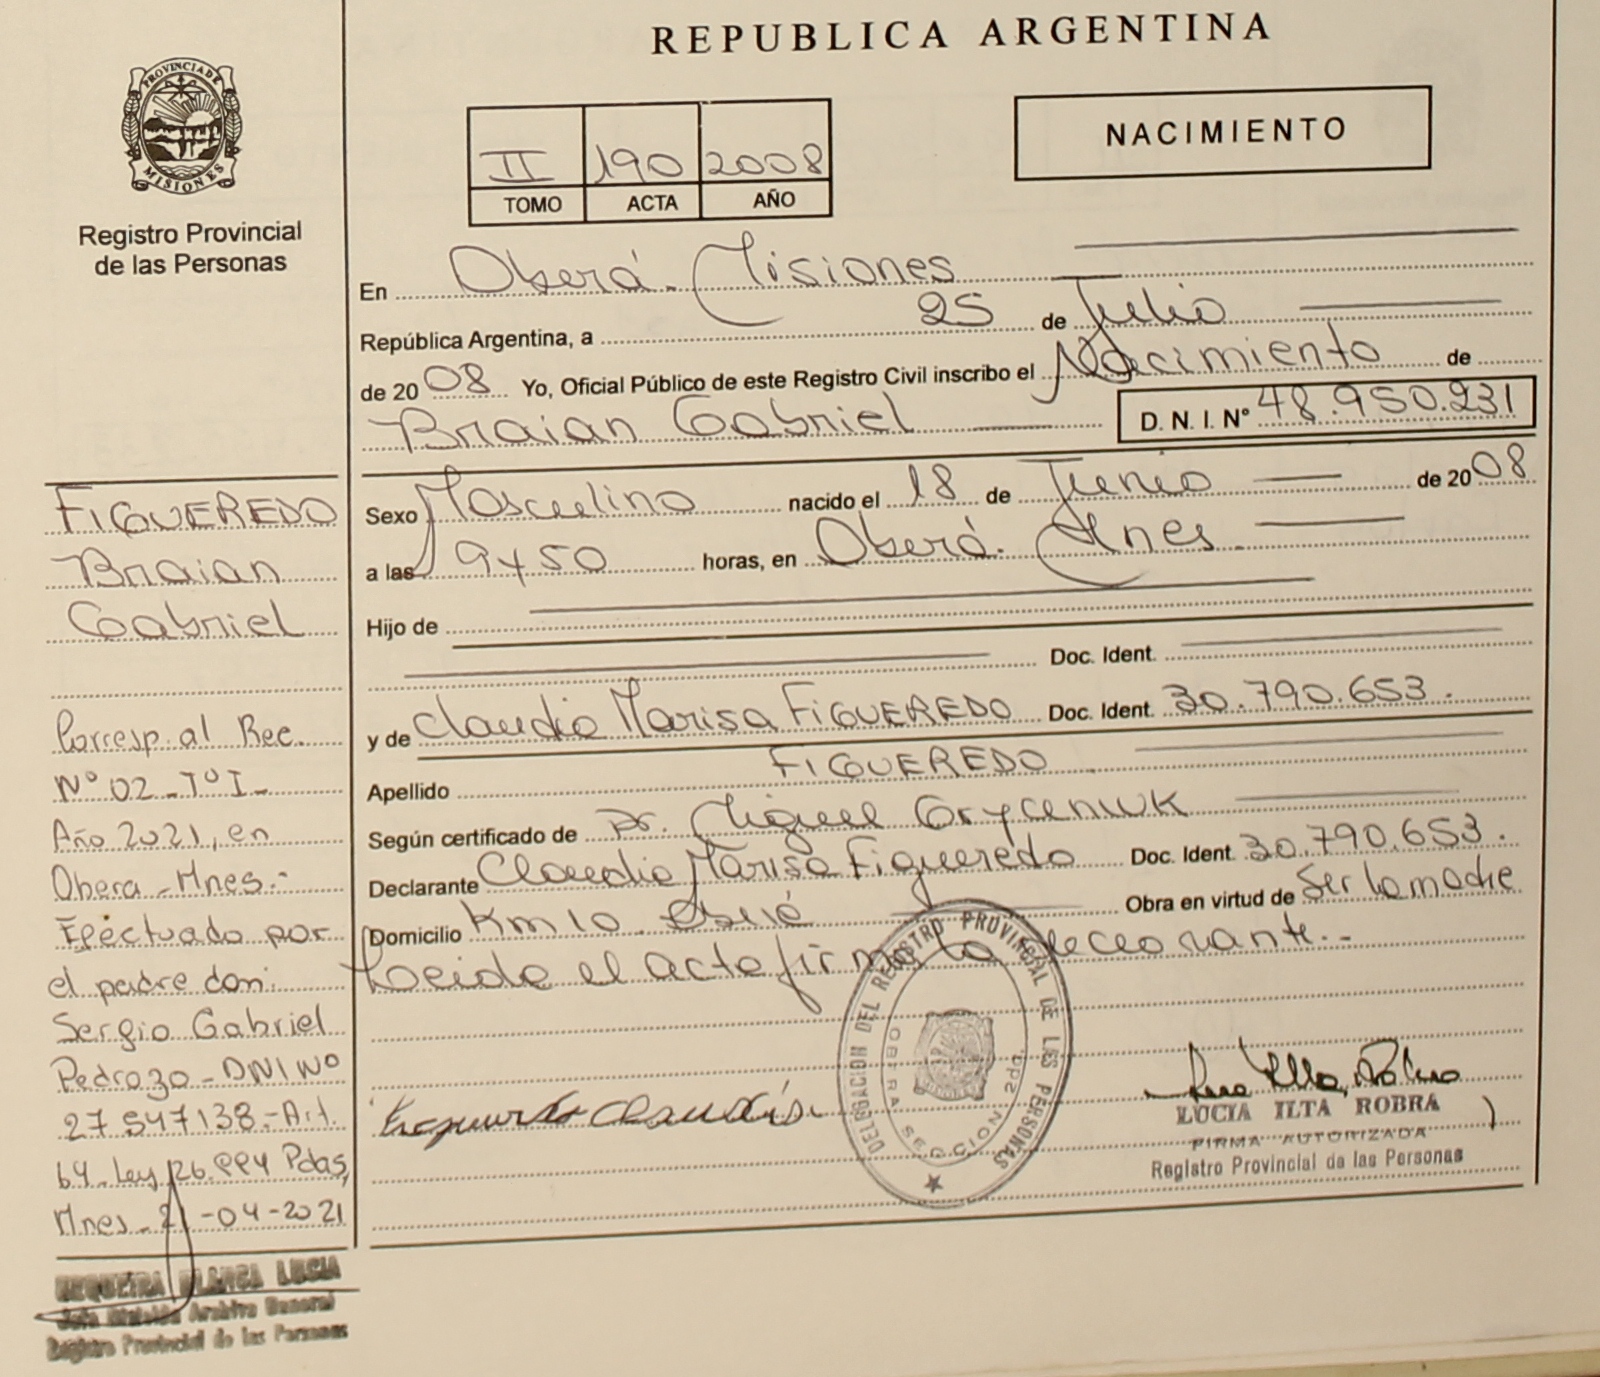 REPUBLICA ARGENTINA
PROVINCIA DE MISIONES
Registro Provincial
de las Personas
II 190 2008
TOMO ACTA AÑO
NACIMIENTO
En Oberá. Misiones
República Argentina, a 25 de Julio
de 2008 Yo, Oficial Público de este Registro Civil inscribo el Nacimiento de
Braian Gabriel D. N. I. Nº 48.950.231
Sexo Masculino nacido el 18 de Junio de 2008
a las 9y50 horas, en Oberá. Mnes.
Hijo de
Doc. Ident.
y de Claudia Marisa FIGUEREDO Doc. Ident. 30.790.653.
Apellido FIGUEREDO
Según certificado de Dr. Miguel
Declarante Claudia Marisa Figueredo Doc. Ident. 30.790.653.
Domicilio Km 10. Obra en virtud de Ser la madre
Leida el acta firma la declarante.-
DELEGACION DEL REGISTRO PROVINCIAL DE LAS PERSONAS
SECCION
LUCIA ILTA ROBRA
FIRMA AUTORIZADA
Registro Provincial de las Personas
FIGUEREDO
Braian
Gabriel
Corresp. al Rec.
Nº 02 - Tº I -
Año 2021, en
Obera - Mnes.-
Efectuado por
el padre don:
Sergio Gabriel
Pedrozo - DNI Nº
27.547.138.- Art.
64 - Ley 26.994 Pdas,
Mnes - 21-04-2021
BLANCA LUCIA
Archivo General
Registro Provincial de las Personas